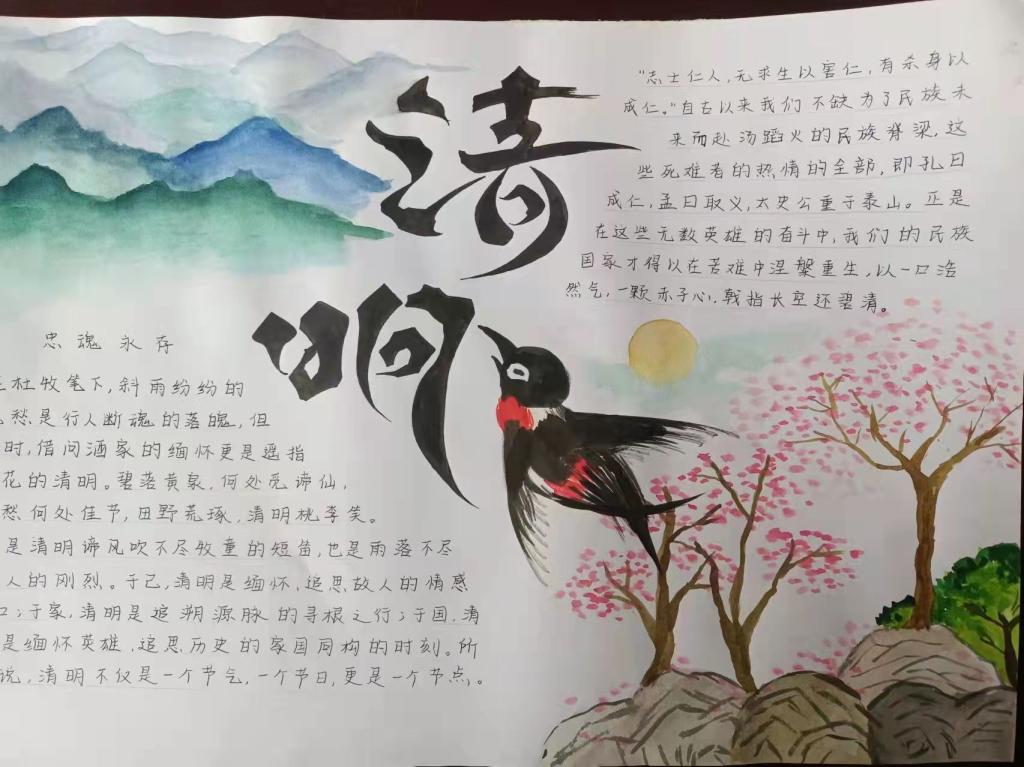 清
明
“志士仁人，无求生以害仁，有杀身以
成仁。”自古以来我们不缺为了民族未
来而赴汤蹈火的民族脊梁，这
些死难者的热情的全部，即孔曰
成仁，孟曰取义，太史公重于泰山。正是
在这些无数英雄的奋斗中，我们的民族
国家才得以在苦难中涅槃重生，以一口浩
然气，一颗赤子心，戟指长空还碧清。
忠魂永存
杜牧笔下，斜雨纷纷的
愁是行人断魂的落魄，但
时，借问酒家的缅怀更是遥指
花的清明。碧落黄泉，何处觅谛仙，
愁何处佳节，田野荒琢，清明桃李笑。
是清明谛风吹不尽牧童的短笛，也是雨落不尽
人的刚烈。于己，清明是缅怀，追思故人的情感
口；于家，清明是追朔源脉的寻根之行；于国，清
是缅怀英雄，追思历史的家国同构的时刻。所
说，清明不仅是一个节气，一个节日，更是一个节点。